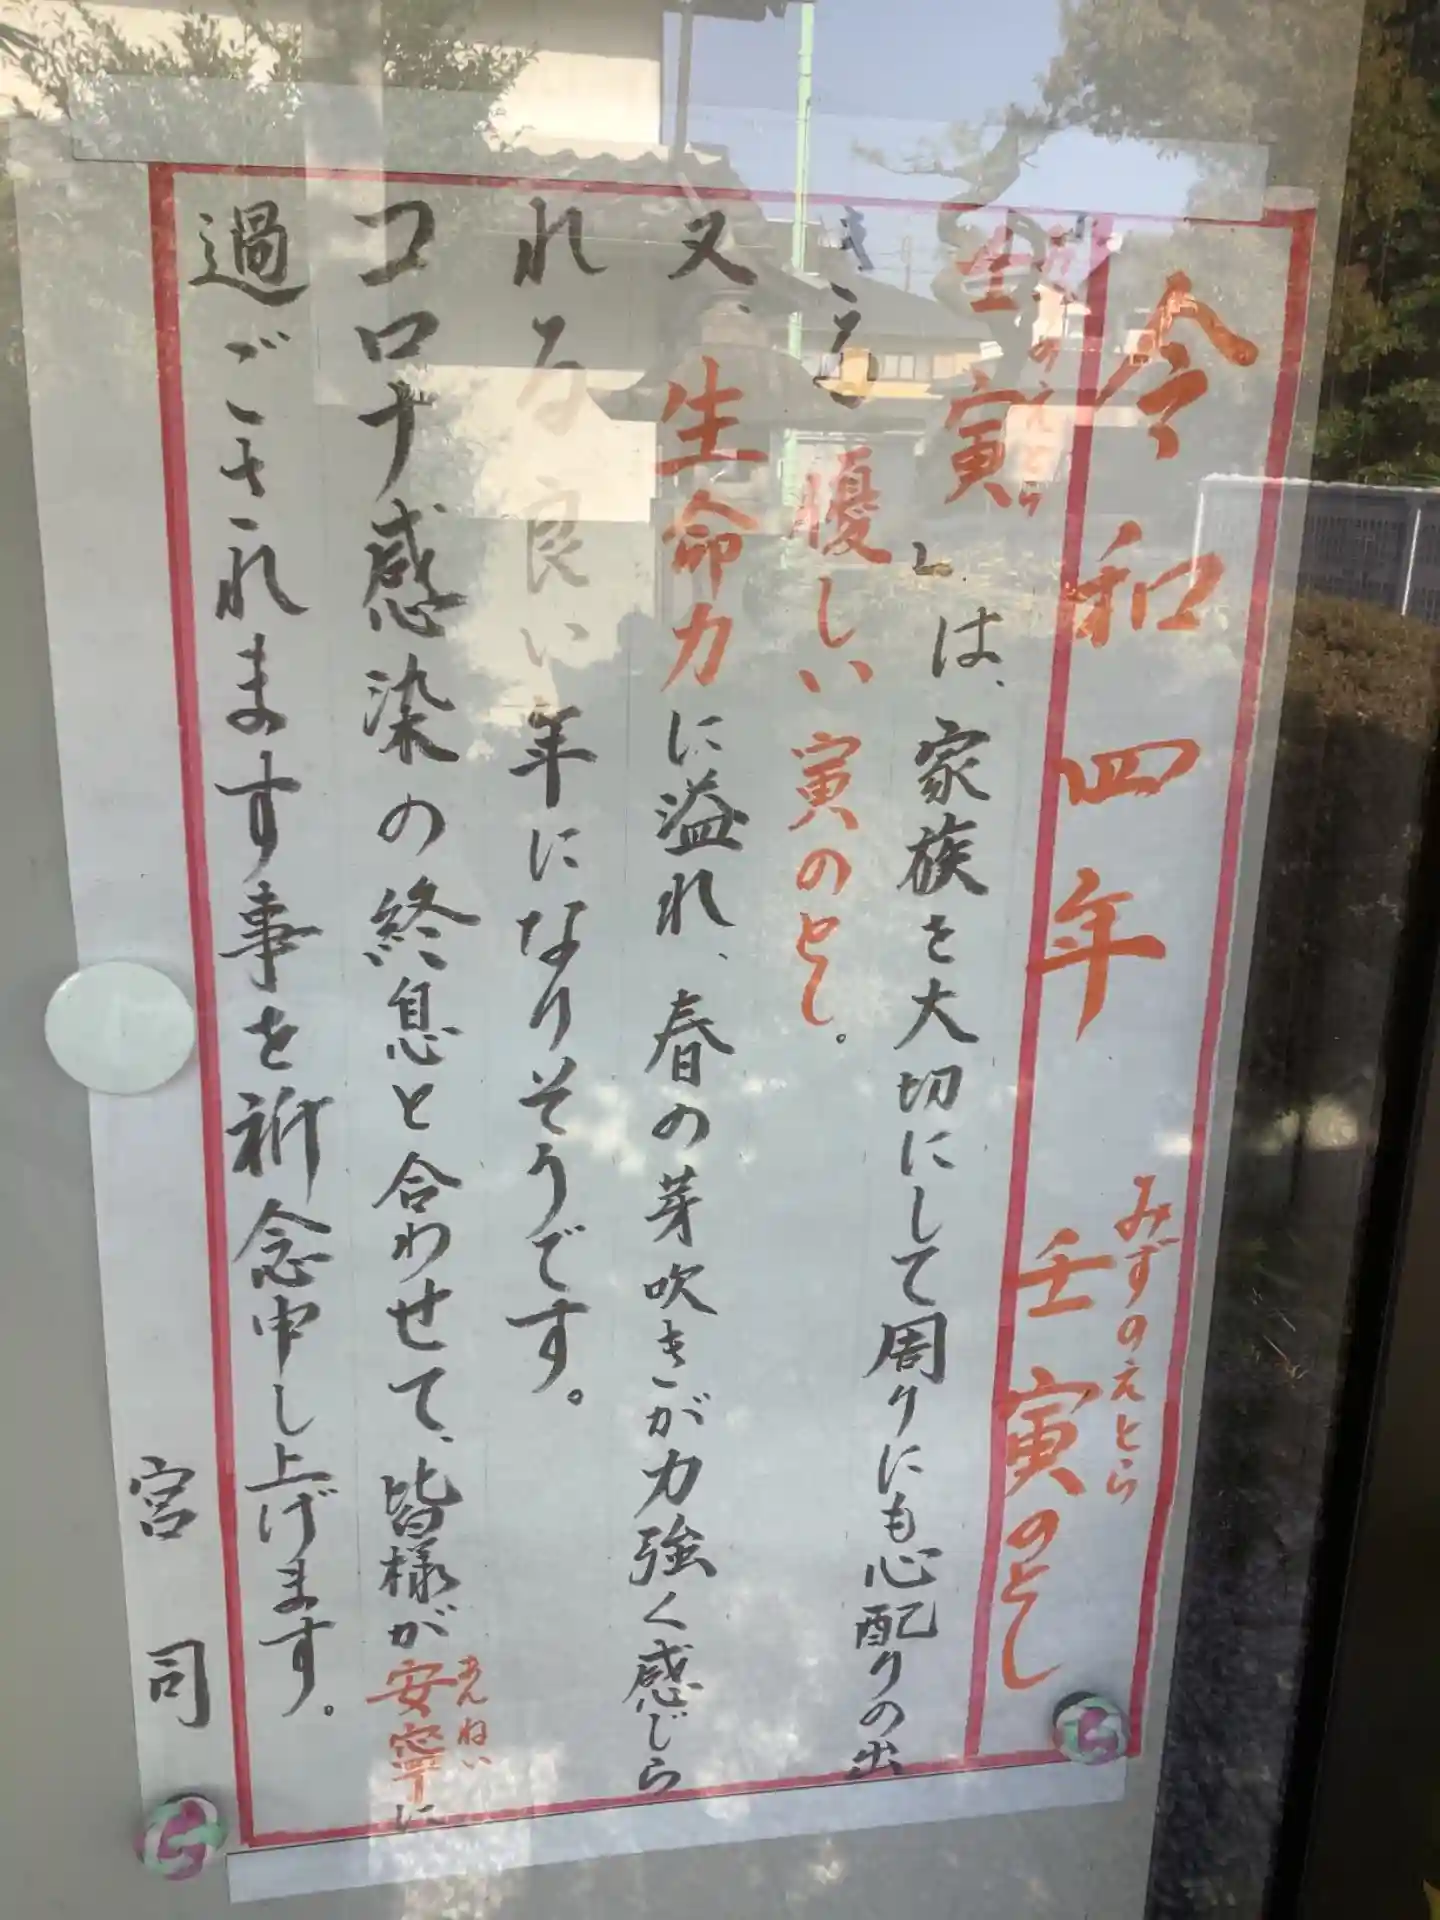 令和四年 壬寅のとし
みずのえとら
壬寅」は、家族を大切にして周りにも心配りの出
みずのえとら
きる優しい寅のとし。
又、生命力に溢れ、春の芽吹きが力強く感じら
れる良い年になりそうです。
コロナ感染の終息と合わせて、皆様が安寧に
あんねい
過ごされます事を祈念申し上げます。
宮司